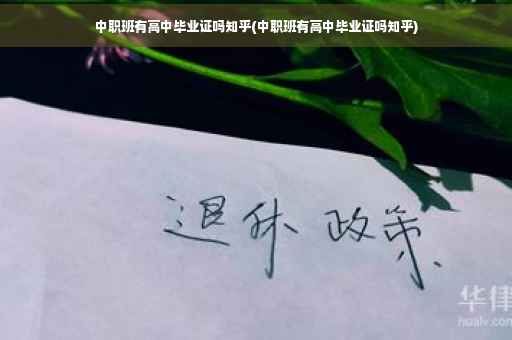 中职班有高中毕业证吗知乎(中职班有高中毕业证吗知乎)
退休 政策
华律
hualv.com